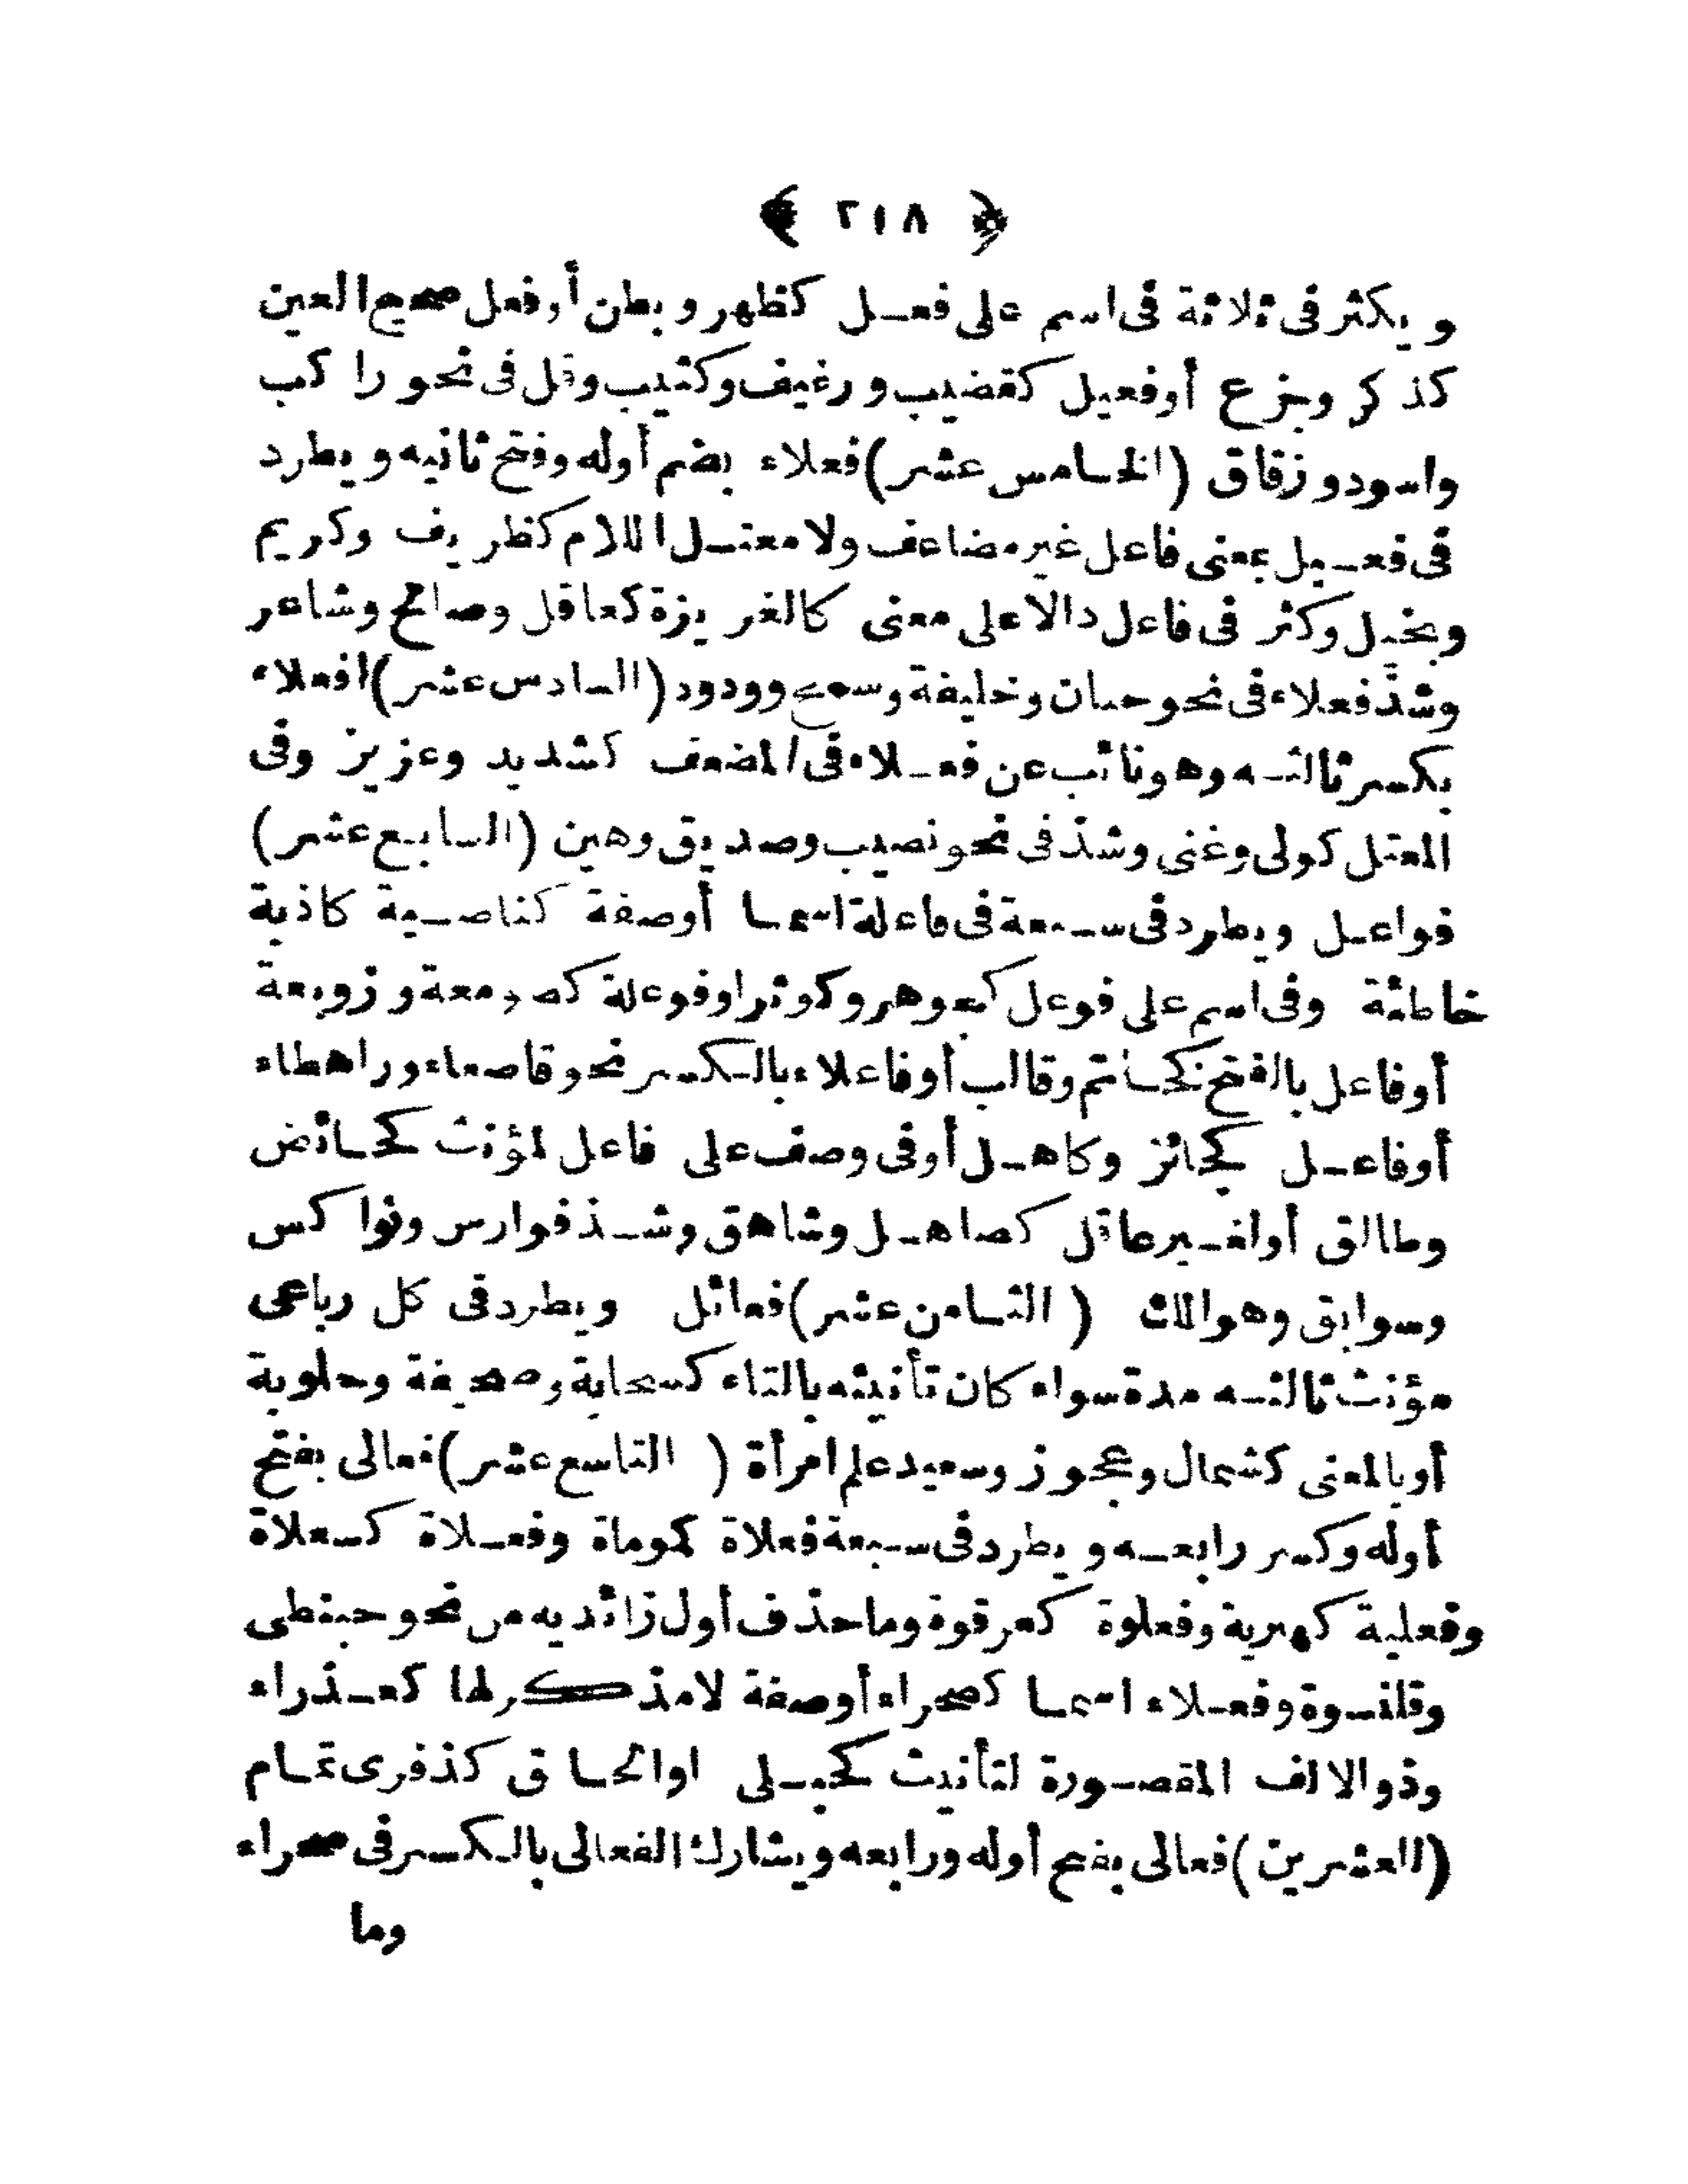 ﴿ ٢١٨ ﴾
ويكثر فى ثلاثة فى اسم على فعل كظهر وبطن أوفعل صحيح العين
كذكر وجزع أوفعيل كقضيب ورغيف وكثيب وقل فى نحو راكب
واسود وزقاق (الخامس عشر) فعلاء بضم أوله وفتح ثانيه ويطرد
فى فعيل بمعنى فاعل غير مضاعف ولا معتل اللام كظريف وكريم
وبخيل وكثر فى فاعل دالا على معنى كالغريزة كعاقل وصالح وشاعر
وشذ فعلاء فى نحو جبان وخليفة وسمح وودود (السادس عشر) افعلاء
بكسر ثالثه وهو نائب عن فعلاء فى المضعف كشديد وعزيز وفى
المعتل كولى وغنى وشذ فى نحو نصيب وصديق وهين (السابع عشر)
فواعل ويطرد فى سبعة فى فاعلة اسما أوصفة كناصية كاذبة
خاطئة وفى اسم على فوعل كجوهر وكوثر اوفوعلة كصومعة وزوبعة
أوفاعل بالفتح كخاتم وقالب أوفاعلاء بالكسر نحو قاصعاء وراهطاء
أوفاعل كجائز وكاهل أوفى وصف على فاعل لمؤنث كحائض
وطالق أولغير عاقل كصاهل وشاهق وشذ فوارس ونواكس
وسوابق وهوالك (الثامن عشر) فعائل ويطرد فى كل رباعى
مؤنث ثالثه مدة سواء كان تأنيثه بالتاء كسحابة وصحيفة وحلوبة
أوبالمعنى كشمال وعجوز وسعيد علم امرأة (التاسع عشر) فعالى بفتح
أوله وكسر رابعه ويطرد فى سبعة فعلاة كموماة وفعلاة كسعلاة
وفعلية كهبرية وفعلوة كعرقوة وما حذف أول زائديه من نحو حبنطى
وقلنسوة وفعلاء اسما كصحراء أوصفة لا مذكر لها كعذراء
وذو الالف المقصورة لتأنيث كحبلى اوالحاق كذفرى تمام
(العشرين) فعالى بفتح أوله ورابعه ويشارك الفعالى بالكسر فى صحراء
وما